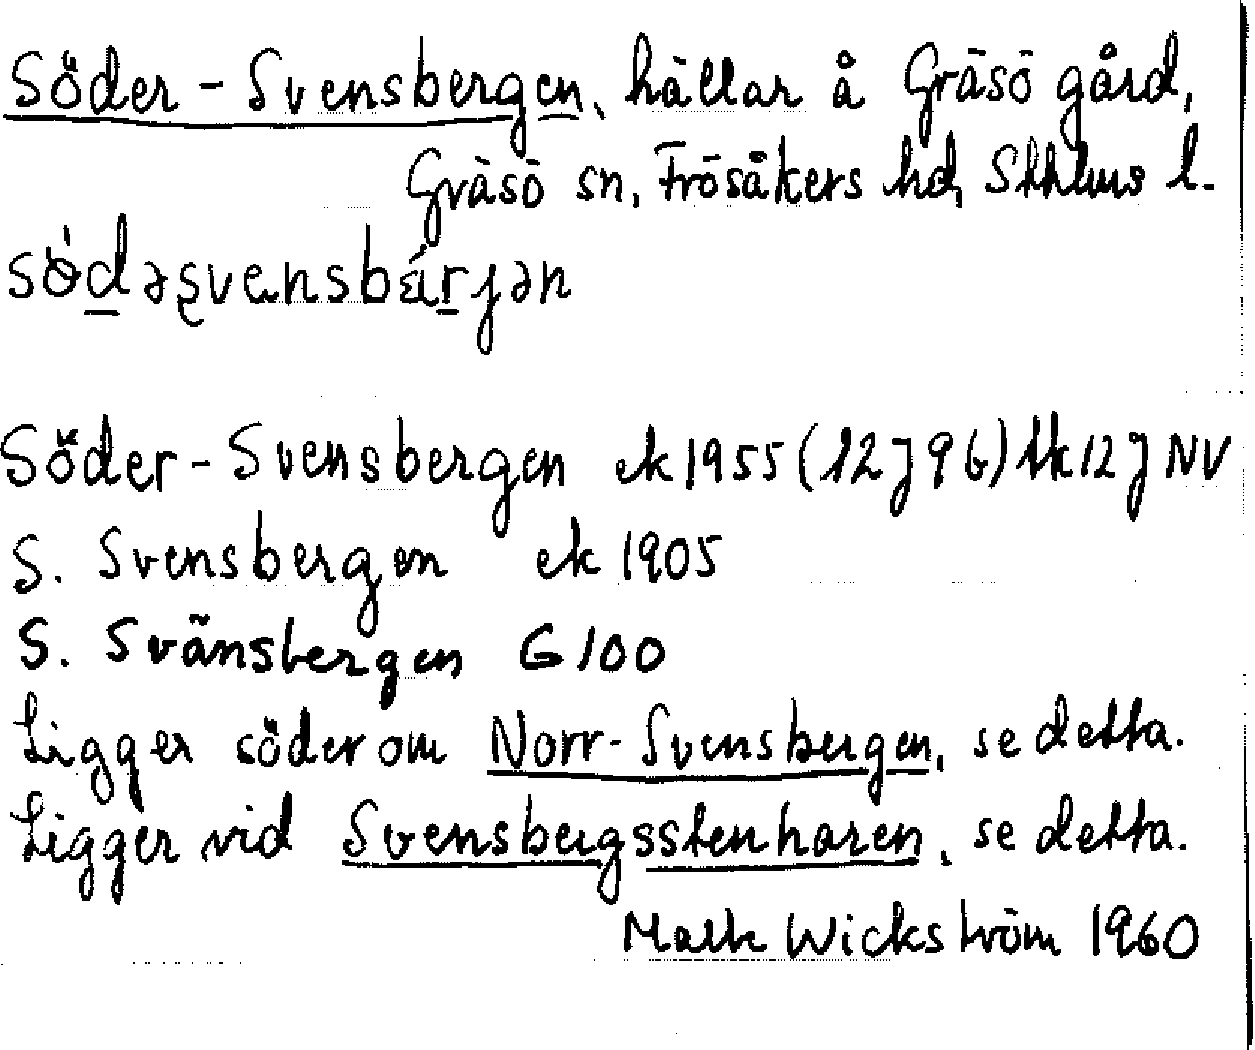 Söder-Svensbergen, hällar å Gräsö gård,
Gräsö sn, Frösåkers hd, Sthlms l.
Söder-Svensbergen ek 1955 (12J9b) tk 12J NV
S. Svensbergen ek 1905
S. Svänsbergen G100
Ligger söder om Norr-Svensbergen, se detta.
Ligger vid Svensbergsstenharen, se detta.
Wickström 1960